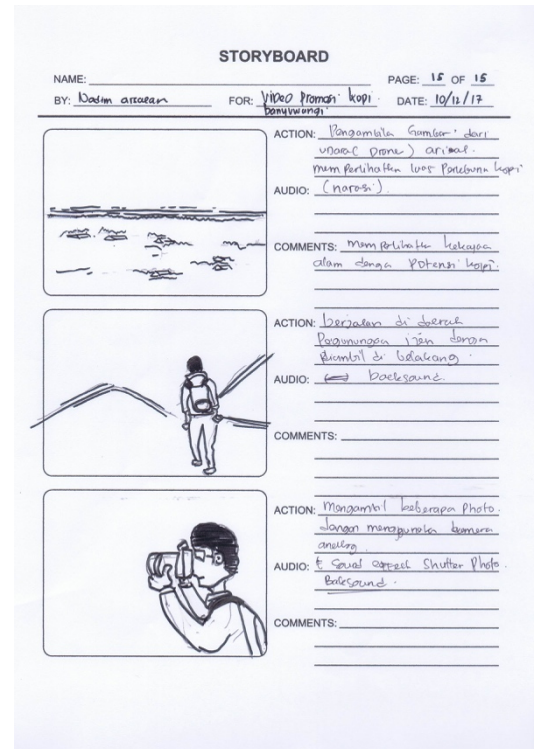 STORYBOARD
NAME:
PAGE: 15 OF 15
BY: Nadim
FOR: Video Promosi kopi
banyuwangi
DATE: 10/12/17
ACTION: Pengambila Gambar dari
udara (Drone)
memperlihatkn luas Perkebunn kopi
AUDIO: (narasi).
COMMENTS: memperlihatkn kekayaa
alam denga Potensi kopi.
ACTION: berjalan di daerah
Pegunungan ijen dengan
diambil di belakang.
AUDIO: backsound.
COMMENTS:
ACTION: Mengambil beberapa Photo.
dengan kamera
analog
AUDIO: Soud effect Shutter Photo.
Backsound.
COMMENTS: